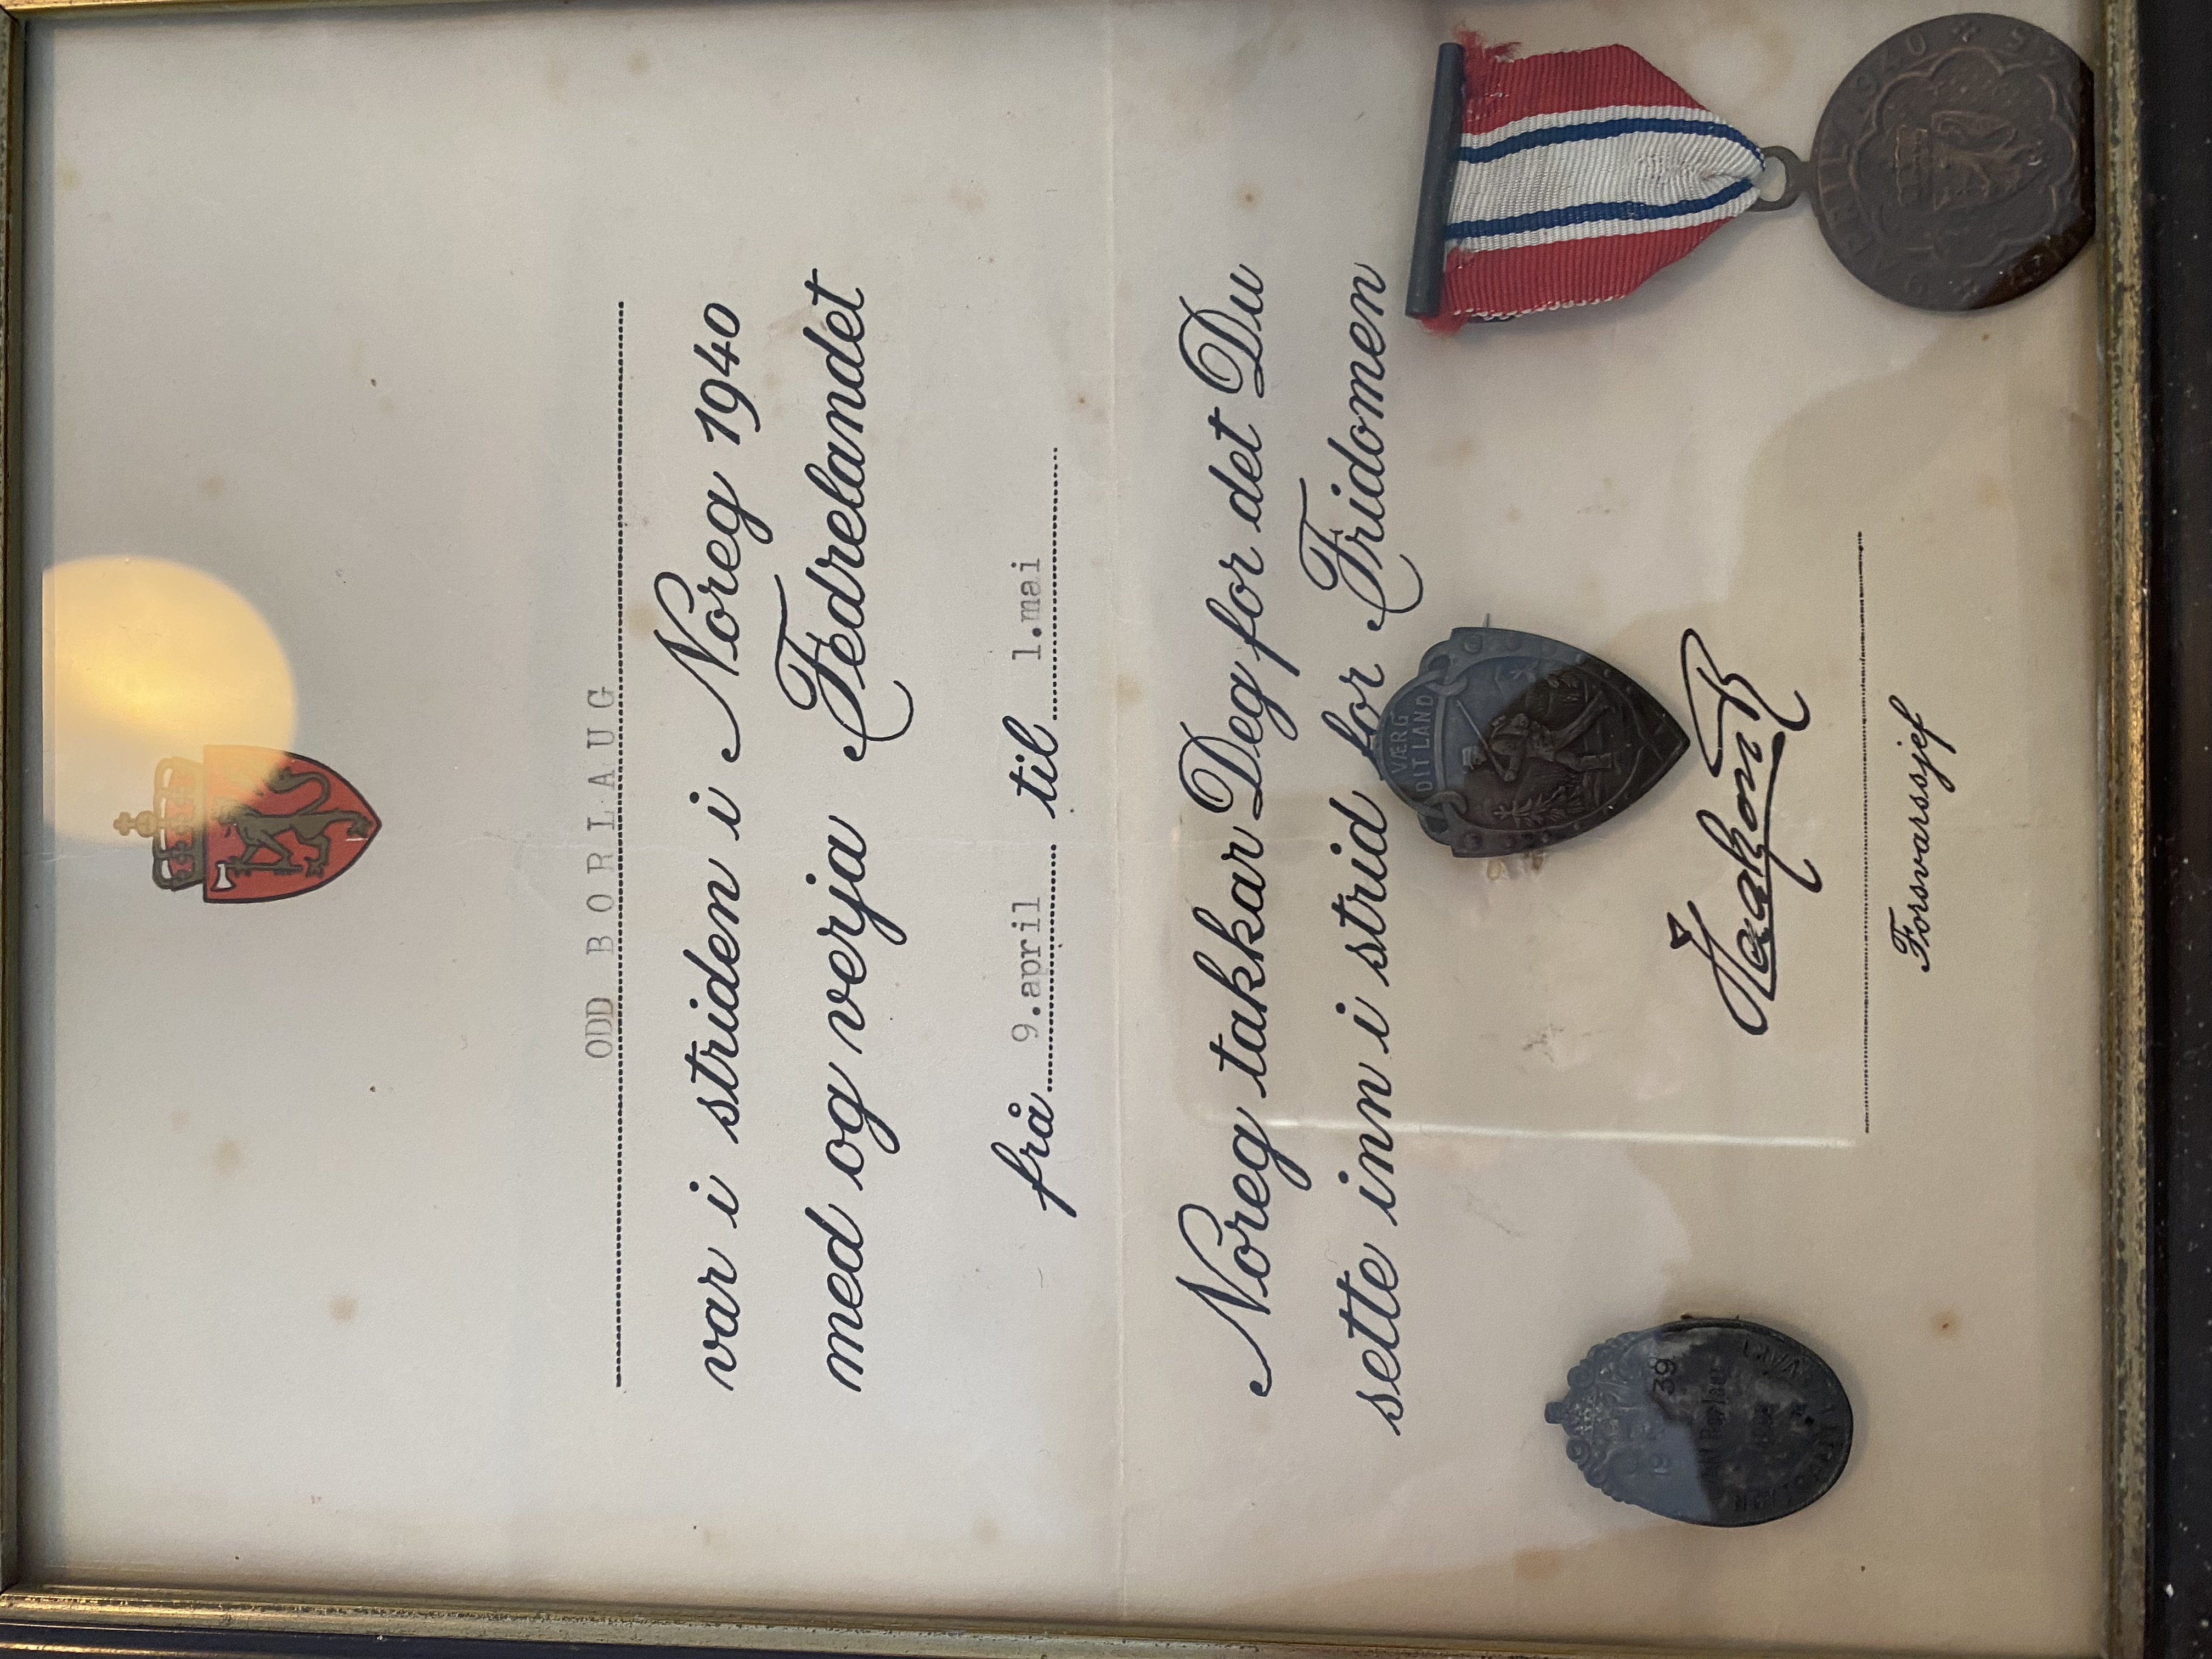 ODD BORLAUG
var i striden i Noreg 1940
med og verja Fedrelandet
frå 9.april til 1.mai
Noreg takkar Deg for det Du
sette inn i strid for Fridomen
VÆRG
DIT LAND
Haakon R
Forsvarssjef
19 39
9 APRIL 1940
45